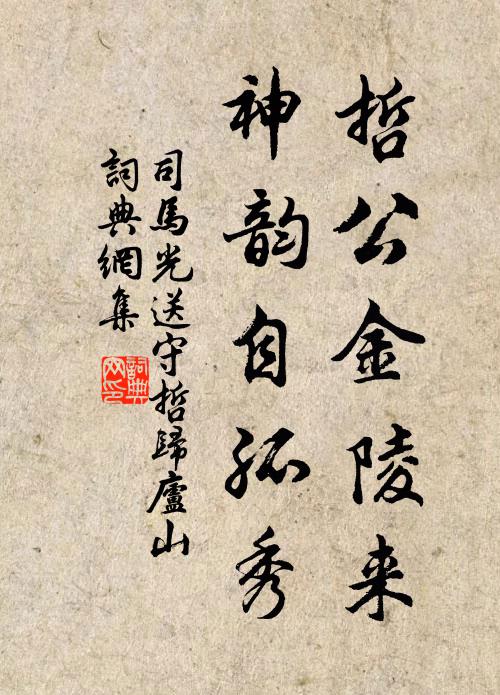 哲公金陵来
神韵自孤秀
司馬光送守哲歸廬山
詞典網集
詞典
网印